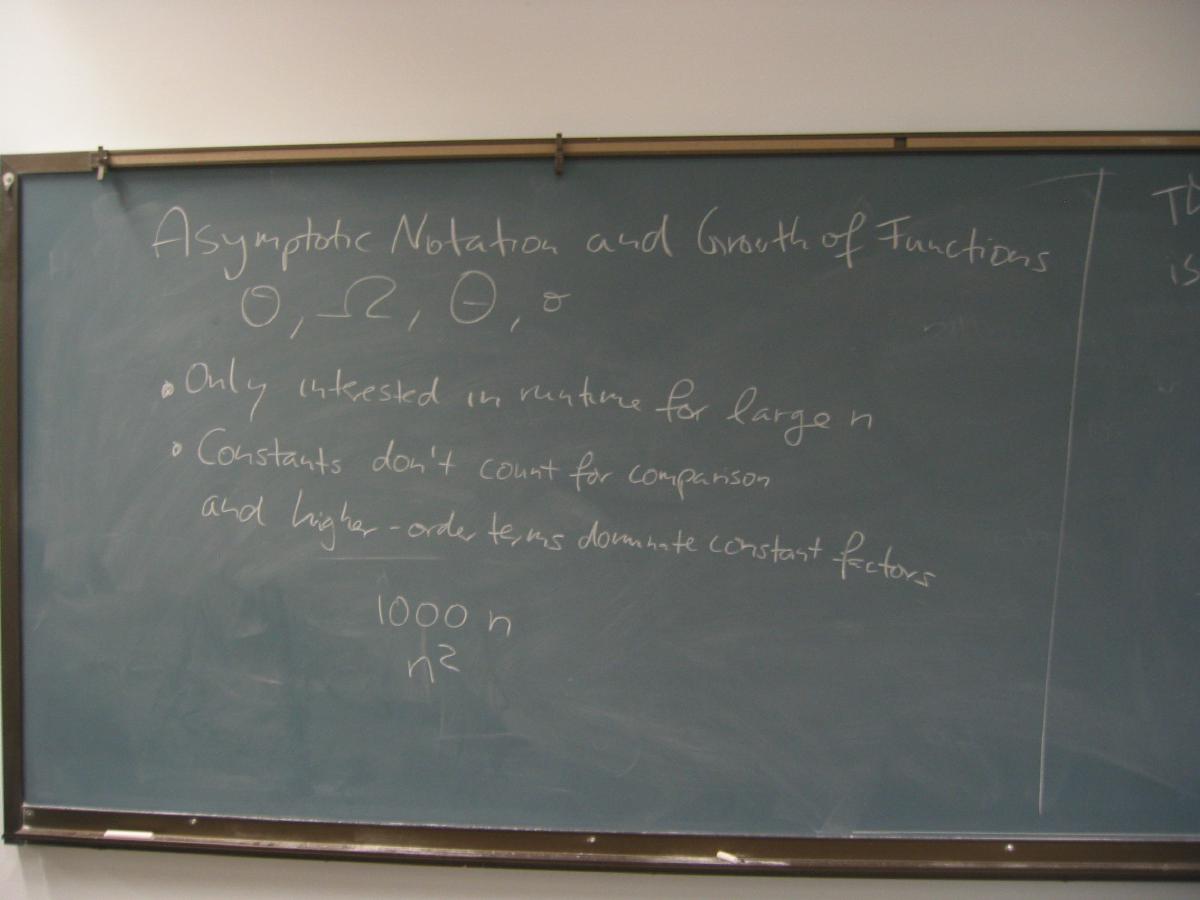 Asymptotic Notation and Growth of Functions
Θ, Ω, Θ, o
• Only interested in runtime for large n
• Constants don't count for comparison
and higher-order terms dominate constant factors
1000 n
n²
is